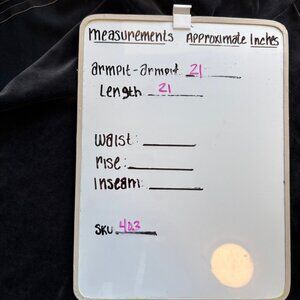 measurements Approximate Inches
armpit-armpit 21
Length 21
Waist:
rise:
Inseam:
SKU 423